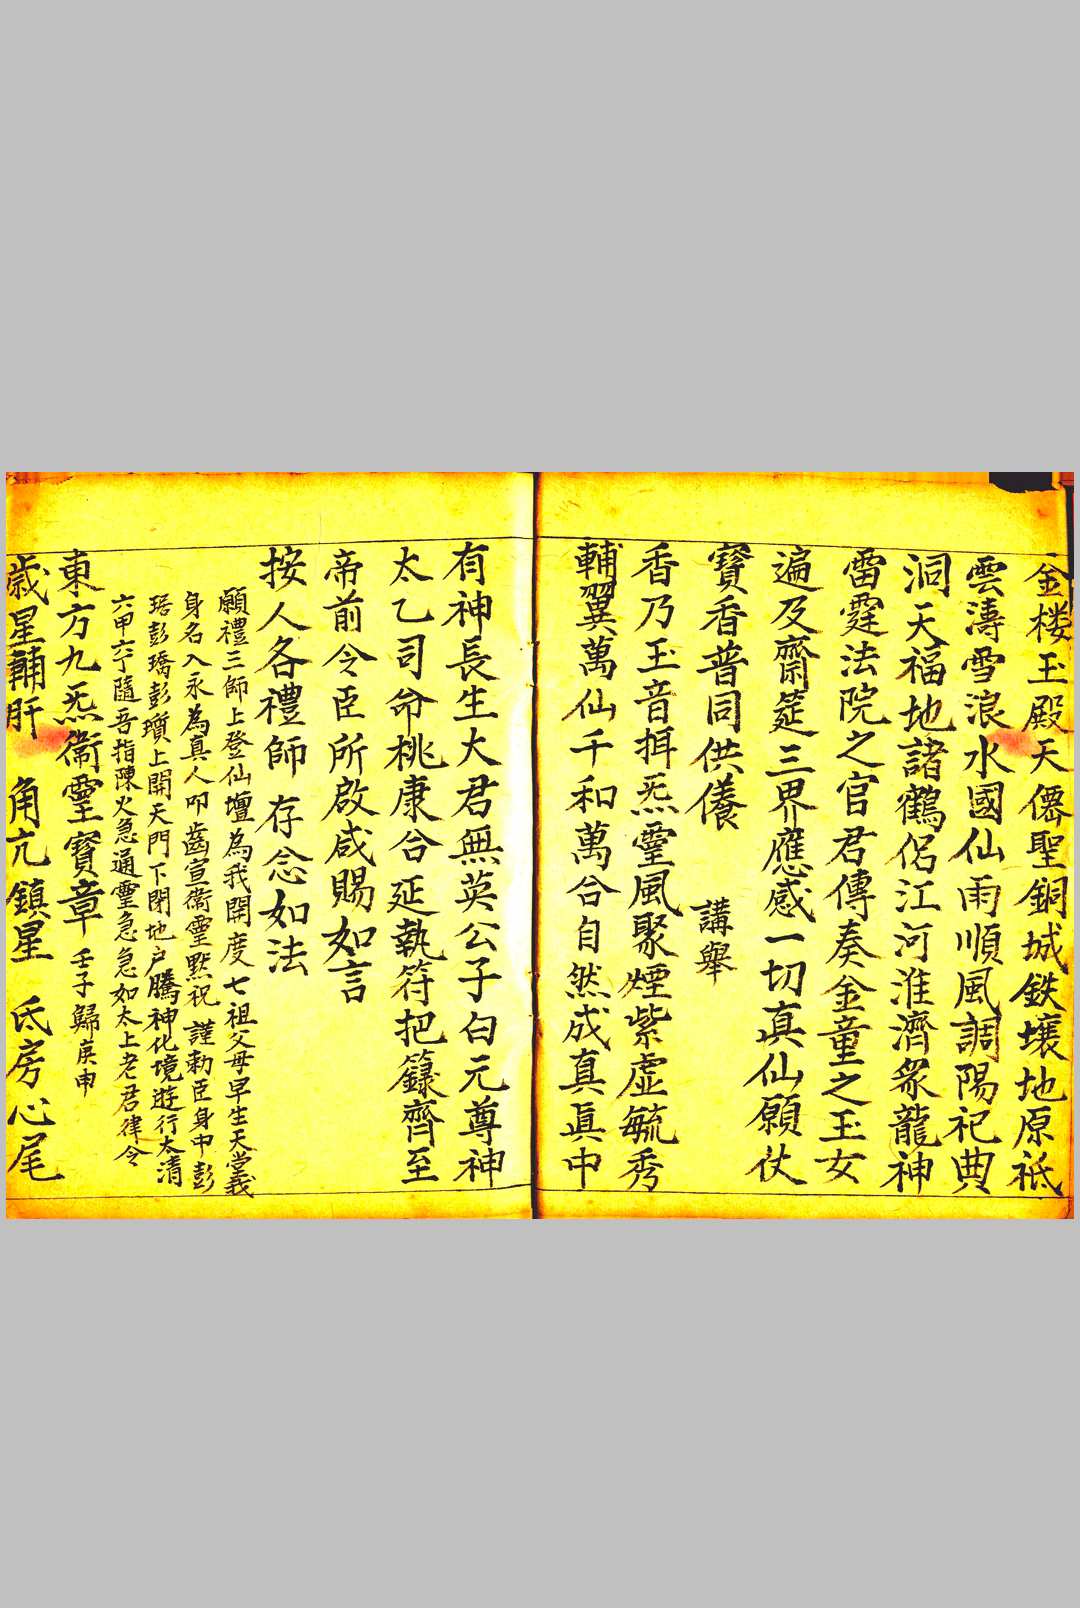 金楼玉殿天僊聖銅城鉄壤地原祇
雲濤雪浪水國仙雨順風調陽祀典
洞天福地諸鶴侶江河淮濟衆龍神
雷霆法院之官君傳奏金童之玉女
遍及齋筵三界應感一切真仙願仗
寳香普同供養 講舉
香乃玉音揖炁靈風聚煙紫虛毓秀
輔翼萬仙千和萬合自然成真眞中
有神長生大君無英公子白元尊神
太乙司命桃康合延執符把籙齊至
帝前令臣所啟咸賜如言
按人各禮師 存念如法
願禮三師上登仙壇為我開度七祖父母早生天堂義
身名入永為真人叩齒宣衞靈黙祝 謹勅臣身中彭
琚彭瓆上開天門下閉地户騰神化境遊行太清
六甲六丁隨吾指陳火急通靈急急如太上老君律令
東方九炁衞靈寳章 壬子歸庚申
歲星輔肝 角亢鎮星 氐房心尾